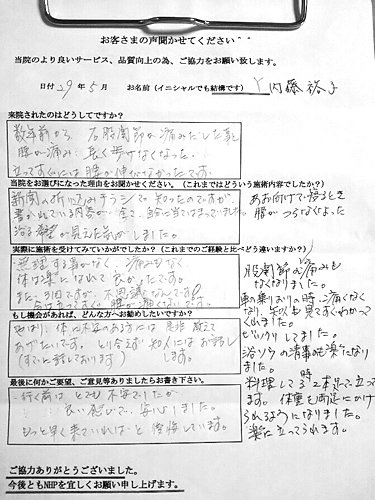 お客さまの声聞かせてください^^
当院のより良いサービス、品質向上の為、ご協力をお願い致します。
日付 29年 5月 お名前（イニシャルでも結構です） 内藤 裕子
来院されたのはどうしてですか？
数年前から 右股関節が痛みだした
腰が痛み 長く歩けなくなった。
立ってすぐには腰が伸びなかったです。
当院をお選びになった理由をお聞かせください。（これまではどういう施術内容でしたか？）
新聞の折り込みチラシで知ったのですが、
書かれている内容が全て、自分に当てはまっていました
治る希望が見えた気がしました。
あお向けで寝るとき
腰がつらくなくなった
実際に施術を受けてみていかがでしたか？（これまでのご経験と比べどう違いますか？）
無理する事がなく 痛みもなく
体は楽になれて良かったです。
股関節の痛みも
なくなりました。
車の乗りおりの時 痛くなく
なり、知人も見てすぐわかって
くれました。
ビックリしてました。
お風呂の清掃も楽になり
ました。
もし機会があれば、どんな方へお勧めしたいですか？
やはり、体の不安のある方には 是非 教えて
あげたいです。とり合えず 知人にはお話し
（すでに話しております） します。
料理して 時 立ってい
ます。体重も両足にかけ
られるようになりました。
楽に立ってられます。
最後に何かご要望、ご意見等ありましたらお書き下さい。
行く前は とても不安でしたが
良い感じで、安心しました。
もっと早く来ていれば…と後悔しています。
ご協力ありがとうございました。
今後ともNHPを宜しくお願い申し上げます。